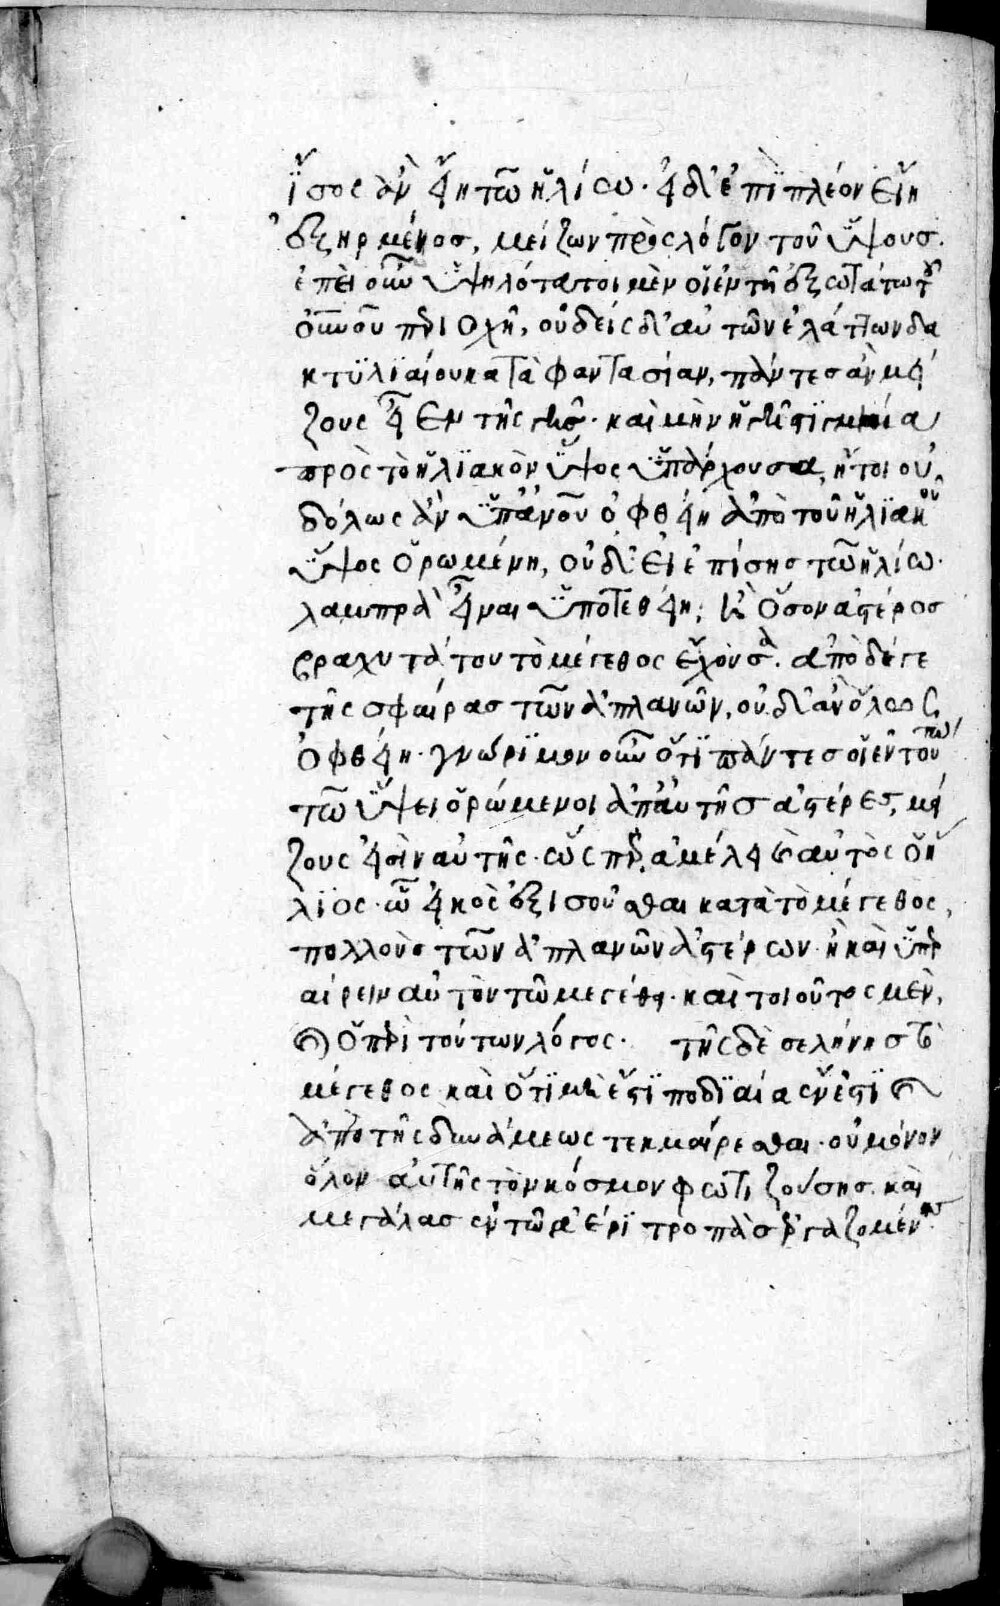 ἴσος ἂν εἴη τῶ ἡλίω· εἰ δ' ἐπὶ πλέον εἴη
ἐξηρμένος, μείζων πρὸς λόγον τοῦ ὕψους.
ἐπεὶ οὖν ὑψηλότατοι μὲν οἱ ἐν τῆ ἐξωτάτω τοῦ
οὐρανοῦ περιοχῆ, οὐδεὶς δ' αὐτῶν ἐλάττων δα
κτυλιαίου κατὰ φαντασίαν, πάντες ἂν μεί
ζους εἶεν τῆς γῆς· καὶ μὴν ἡ γῆ στιγμιαία
πρὸς τὸ ἡλιακὸν ὕψος ὑπάρχουσα, ἤτοι οὐ
δόλως ἂν ὑπ' ἀνοῦ ὀφθείη ἀπὸ τοῦ ἡλιακοῦ
ὕψος ὁρωμένη, οὐδ' εἰ ἐπίσης τῶ ἡλίω
λαμπρὰ εἶναι ὑποτεθείη· ἢ ὅσον ἀστέρος
βραχυτάτου τὸ μέγεθος ἔχουσα. ἀπὸ δέ γε
τῆς σφαίρας τῶν ἀπλανῶν, οὐδ' ἂν ὅλως
ὀφθείη· γνώριμον οὖν ὅτι πάντες οἱ ἐν τούτω
τῶ ὕψει ὁρώμενοι ἀπ' αὐτῆς ἀστέρες, μεί
ζους εἰσὶν αὐτῆς· ὥσπερ ἀμέλει καὶ αὐτὸς ὁ ἥ
λιος· ᾧ εἰκὸς ἐξισοῦσθαι κατὰ τὸ μέγεθος,
πολλοὺς τῶν ἀπλανῶν ἀστέρων· ἢ καὶ ὑπερ
αίρειν αὐτὸν τῶ μεγέθει· καὶ τοιοῦτος μὲν,
ὁ περὶ τούτων λόγος· τῆς δὲ σελήνης τὸ
μέγεθος καὶ ὅτι μή ἐστι ποδιαία ἔνεστι
ἀπὸ τῆς δυνάμεως τεκμαίρεσθαι· οὐ μόνον
ὅλον αὐτῆς τὸν κόσμον φωτιζούσης· καὶ
μεγάλας ἐν τῶ ἀέρι τροπὰς ἐργαζομένης